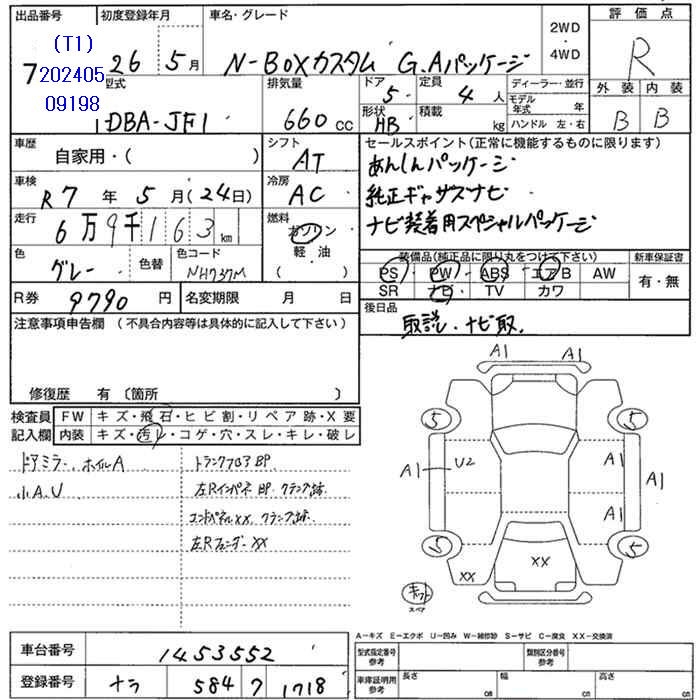 出品番号
(T1)
7
202405
09198
初度登録年月
26 5月
車名・グレード
N-BOXカスタム G.Aパッケージ
2WD
・
4WD
評価点
R
型式
DBA-JF1
排気量
660 cc
ドア 5
形状 HB
定員 4 人
積載 kg
ディーラー・並行
モデル年式 年
ハンドル 左・右
外装 内装
B B
車歴
自家用・( )
シフト
AT
車検
R7年5月(24日)
冷房
AC
走行
6万9千163km
燃料
ガソリン
軽・油
( )
色
グレー
色替
色コード
NH737M
R券 9790 円
名変期限 月 日
セールスポイント(正常に機能するものに限ります)
あんしんパッケージ
純正ギャザズナビ
ナビ装着用スペシャルパッケージ
装備品(純正品に限り丸をつけて下さい)
PS・PW・ABS・エアB AW
SR ナビ TV カワ
新車保証書
有・無
後日品
取説・ナビ取.
注意事項申告欄(不具合内容等は具体的に記入して下さい)
修復歴 有〔箇所 〕
検査員記入欄
FW キズ・飛石・ヒビ割・リペア跡・X要
内装 キズ・汚レ・コゲ・穴・スレ・キレ・破レ
ドアミラー、ホイルA
小A.U
トランクフロアBP
左Rインパネ BP. クランプ跡.
エンドパネルXX. クランプ跡.
左Rフェンダー XX
A1 A1
5 5
A1 U2 A1 A1
A1
5 5
XX XX
スペア
A-キズ E-エクボ U-凹み W-補修跡 S-サビ C-腐食 XX-交換済
車台番号 1453552
登録番号 ナラ 584 フ 1718
型式指定番号
参考
類別区分番号
参考
車庫証明用
参考
長さ cm
幅 cm
高さ cm